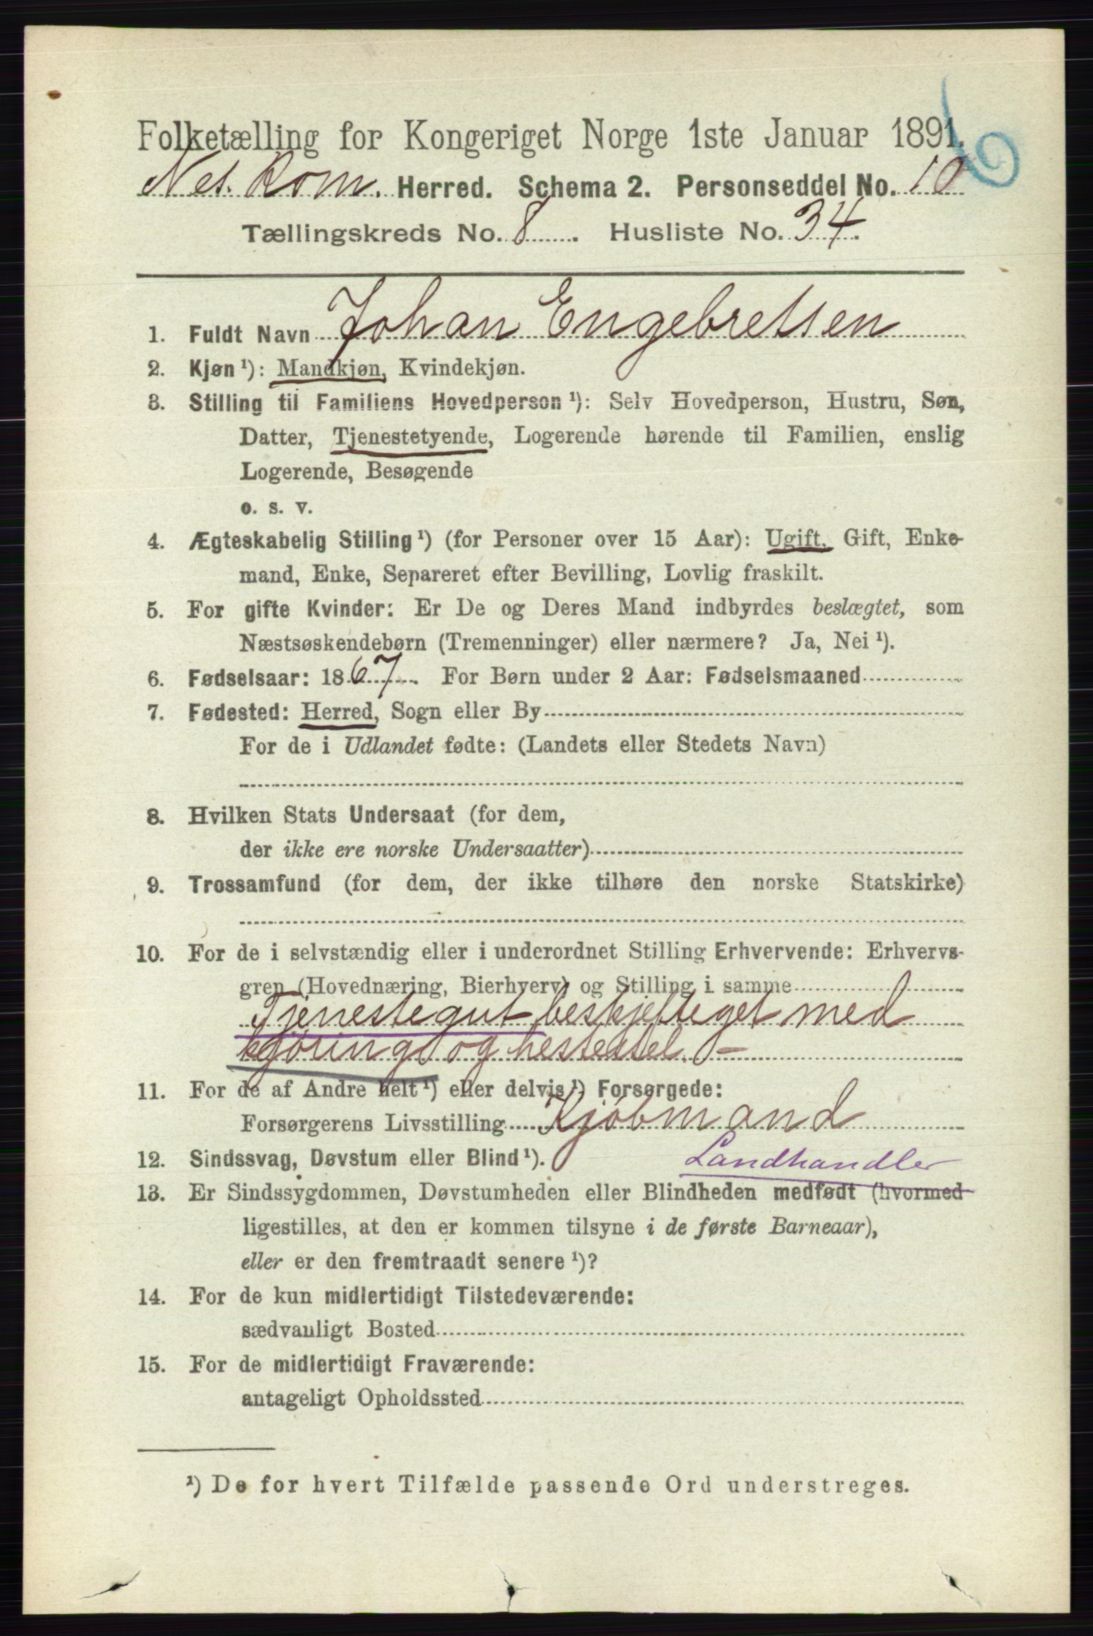 Folketælling for Kongeriget Norge 1ste Januar 1891.
Nes. Rom. Herred. Schema 2. Personseddel No. 10
Tællingskreds No. 8. Husliste No. 34.
1. Fuldt Navn Johan Engebretsen
2. Kjøn ¹): Mandkjøn, Kvindekjøn.
3. Stilling til Familiens Hovedperson ¹): Selv Hovedperson, Hustru, Søn,
Datter, Tjenestetyende, Logerende hørende til Familien, enslig
Logerende, Besøgende
o. s. v.
4. Ægteskabelig Stilling ¹) (for Personer over 15 Aar): Ugift, Gift, Enke-
mand, Enke, Separeret efter Bevilling, Lovlig fraskilt.
5. For gifte Kvinder: Er De og Deres Mand indbyrdes beslægtet, som
Næstsøskendebørn (Tremenninger) eller nærmere? Ja, Nei ¹).
6. Fødselsaar: 1867. For Børn under 2 Aar: Fødselsmaaned
7. Fødested: Herred, Sogn eller By
For de i Udlandet fødte: (Landets eller Stedets Navn)
8. Hvilken Stats Undersaat (for dem,
der ikke ere norske Undersaatter)
9. Trossamfund (for dem, der ikke tilhøre den norske Statskirke)
10. For de i selvstændig eller i underordnet Stilling Erhvervende: Erhvervs-
gren (Hovednæring, Bierhverv) og Stilling i samme
Tjenestegut beskjeftiget med
kjøring og hestestel. -
11. For de af Andre helt ¹) eller delvis ¹) Forsørgede:
Forsørgerens Livsstilling Kjøbmand
12. Sindssvag, Døvstum eller Blind ¹). Landhandler
13. Er Sindssygdommen, Døvstumheden eller Blindheden medfødt (hvormed
ligestilles, at den er kommen tilsyne i de første Barneaar),
eller er den fremtraadt senere ¹)?
14. For de kun midlertidigt Tilstedeværende:
sædvanligt Bosted
15. For de midlertidigt Fraværende:
antageligt Opholdssted
¹) De for hvert Tilfælde passende Ord understreges.